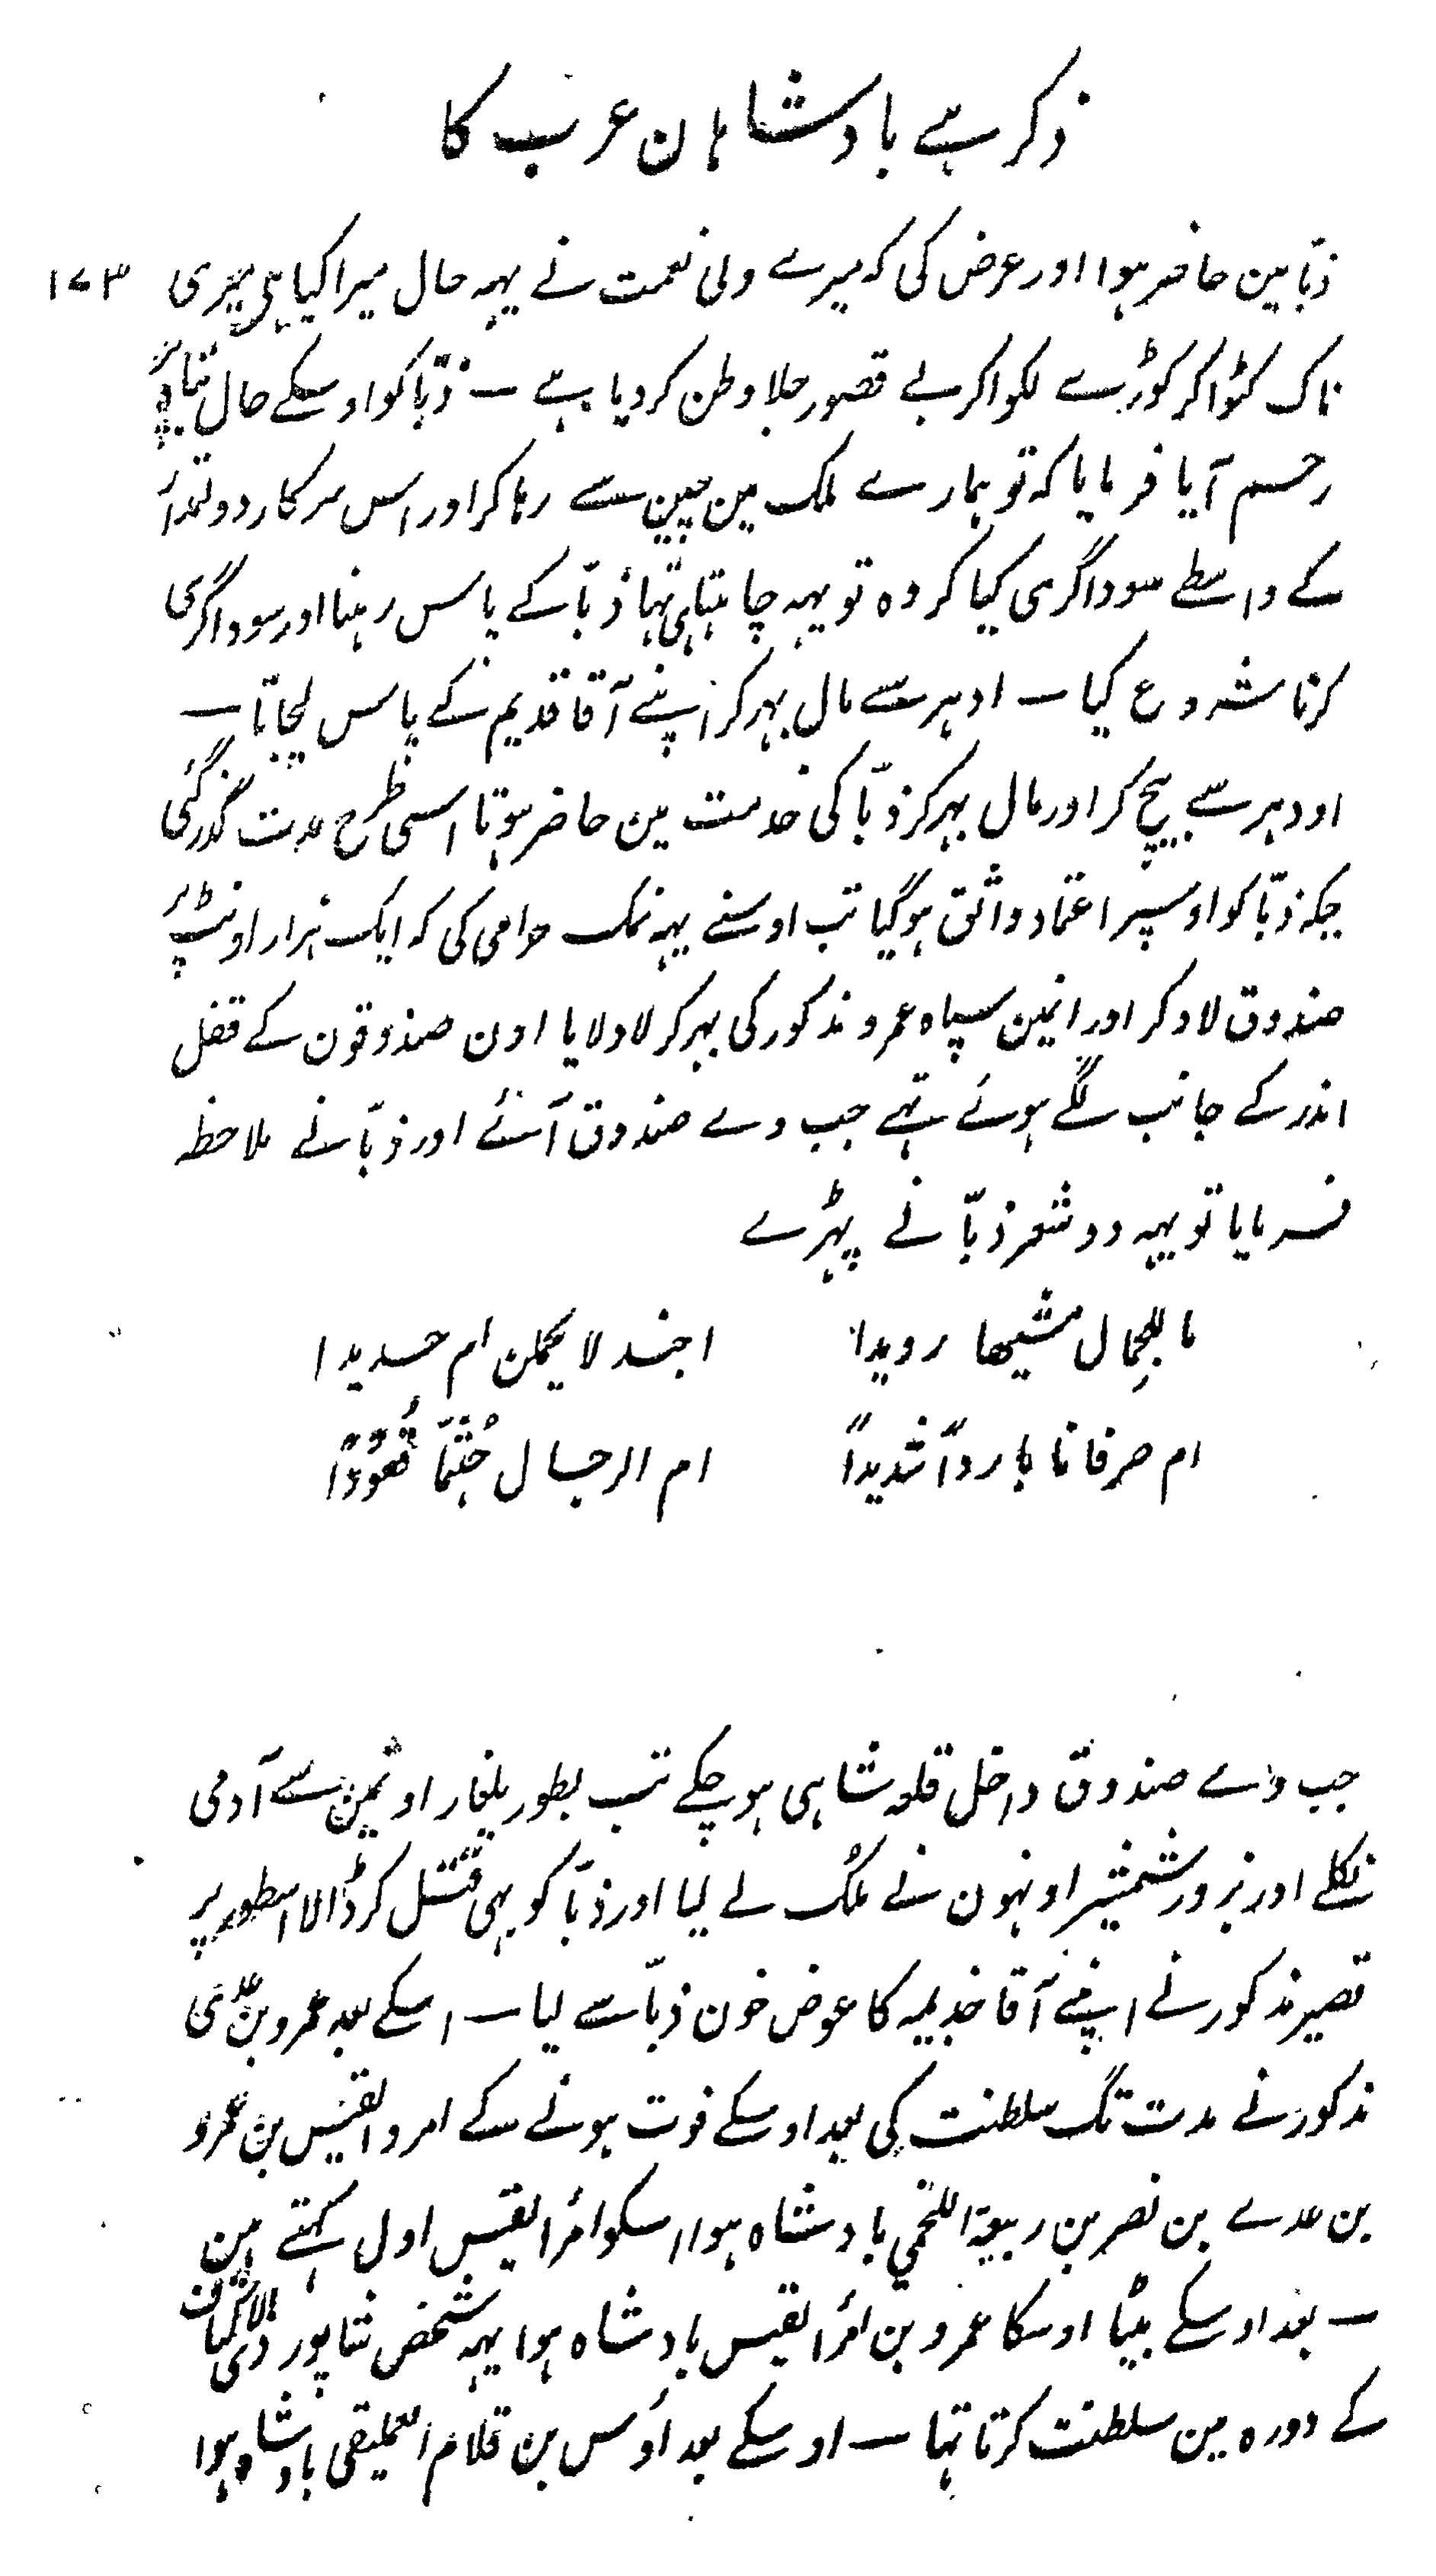 ذکر ہے بادشاہان عرب کا
زبّا مین حاضر ہوا اور عرض کی کہ میرے ولی نعمت نے یہہ حال میرا کیا ہی میری ۱۷۳
ناک کٹواکر کوڑے لگواکر بے قصور جلا وطن کردیا ہے — زبّا کو اوسکے حال تباہ پر
رحم آیا فرمایا کہ تو ہمارے ملک مین چین سے رہا کر اور اس سرکار دولتمدار
کے واسطے سوداگری کیا کر وہ تو یہہ چاہتا ہی تہا زبّا کے پاس رہنا اور سوداگری
کرنا شروع کیا — ادہر سے مال بہر کر اپنے آقا قدیم کے پاس لیجاتا —
اودہر سے بیچ کر اور مال بہر کر زبّا کی خدمت مین حاضر ہوتا اسی طرح مدت گذر گئی
جبکہ زبّا کو اوسپر اعتماد واثق ہوگیا تب اوسنے یہہ نمک حرامی کی کہ ایک ہزار اونٹ پر
صندوق لاد کر اور انمین سپاہ عمرو مذکور کی بہر کر لاد لایا اون صندوقون کے قفل
اندر کے جانب لگے ہوئے تہے جب وے صندوق آئے اور زبّا نے ملاحظہ
فرمایا تو یہہ دو شعر زبّا نے پہڑے
ما للجمال مشیھا رویدا اجندلا یحملن ام حدیدا
ام صرفانا باردًا شدیدًا ام الرجال جُثّمًا قُعُودًا
جب وے صندوق داخل قلعہ شاہی ہو چکے تب بطور یلغار اونمین سے آدمی
نکلے اور بزور شمشیر اونہون نے ملک لے لیا اور زبّا کو بہی قتل کر ڈالا اسطور پر
قصیر مذکور نے اپنے آقا جذیمہ کا عوض خون زبّا سے لیا — اسکے بعد عمرو بن عدی
مذکور نے مدت تک سلطنت کی بعد اوسکے فوت ہونے کے امرو القیس بن عمرو
بن عدے بن نصر بن ربیعۃ اللخمی بادشاہ ہوا اسکو امرُا لقیس اول کہتے ہین
— بعد اوسکے بیٹا اوسکا عمرو بن امرُا لقیس بادشاہ ہوا یہہ شخص شاپور ذی الاکتاف
کے دورہ مین سلطنت کرتا تہا — اوسکے بعد اوس بن قلام العملیقی بادشاہ ہوا